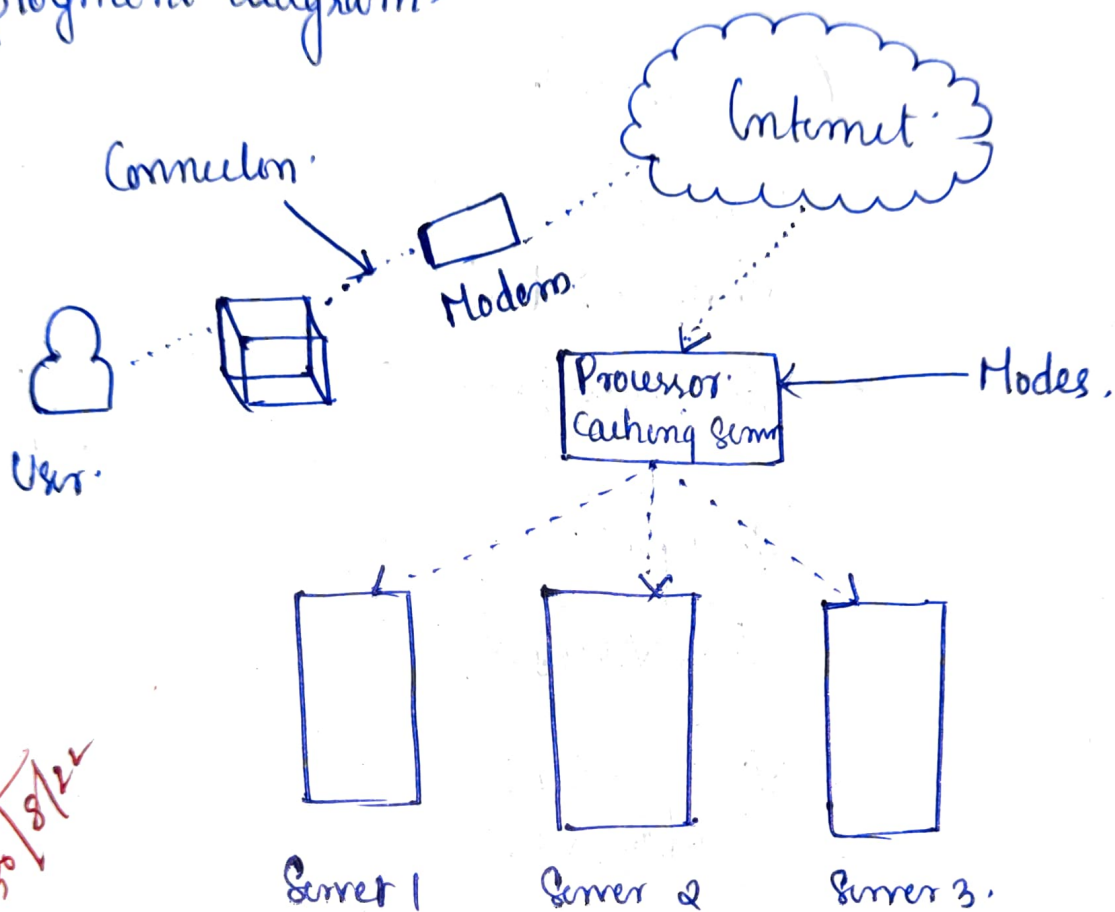 diagram.
Internet.
Connection.
Modem
Processor.
Caching Server
Modes.
User.
8/22
Server 1
Server 2
Server 3.